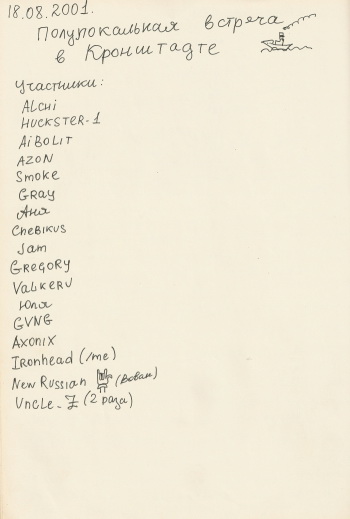 18.08.2001.
Полупокальная встреча
в Кронштадте
Участники:
ALchi
HUCKSTER-1
AiBOLiT
AZON
Smoke
GRay
Аня
CheBiKUS
Jam
GREGORY
VaLKERU
Юля
GVNG
AXONiX
IRonhead (/me)
New Russian (Вован)
Uncle_Z (2 раза)